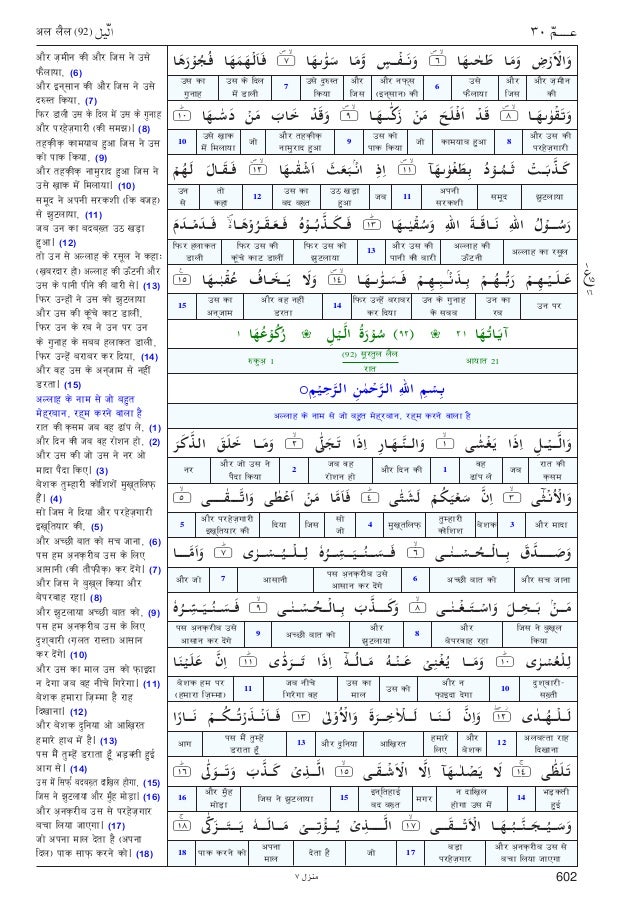 अल लैल (92) الّیل
عمّ ٣٠
और ज़मीन की और जिस ने उसे
फैलाया, (6)
और इन्सान की और जिस ने उसे
दरुस्त किया, (7)
फिर डाली उस के दिल में उस के गुनाह
और परहेज़गारी (की समझ)। (8)
तहक़ीक़ कामयाब हुआ जिस ने उस
को पाक किया, (9)
और तहक़ीक़ नामुराद हुआ जिस ने
उसे ख़ाक में मिलाया। (10)
समूद ने अपनी सरकशी (कि वजह)
से झुटलाया, (11)
जब उन का बदबख़्त उठ खड़ा
हुआ। (12)
तो उन से अल्लाह के रसूल ने कहाः
(ख़बरदार हो) अल्लाह की ऊँटनी और
उस के पानी पीने की बारी से। (13)
फिर उन्हों ने उस को झुटलाया
और उस की कूंचे काट डालीं,
फिर उन के रब ने उन पर उन
के गुनाह के सबब हलाकत डाली,
फिर उन्हें बराबर कर दिया, (14)
और वह उस के अन्जाम से नहीं
डरता। (15)
अल्लाह के नाम से जो बहुत
मेह्रबान, रह्म करने वाला है
रात की क़सम जब वह ढांप ले, (1)
और दिन की जब वह रोशन हो, (2)
और उस की जो उस ने नर ओ
मादा पैदा किए। (3)
बेशक तुम्हारी कोशिशें मुख़्तलिफ़
हैं। (4)
सो जिस ने दिया और परहेज़गारी
इख़्तियार की, (5)
और अच्छी बात को सच जाना, (6)
पस हम अ़नक़रीब उस के लिए
आसानी (की तौफ़ीक़) कर देंगे। (7)
और जिस ने बुख़्ल किया और
बेपरवाह रहा। (8)
और झुटलाया अच्छी बात को, (9)
पस हम अ़नक़रीब उस के लिए
दुश्वारी (ग़लत रास्ता) आसान
कर देंगे। (10)
और उस का माल उस को फ़ाइदा
न देगा जब वह नीचे गिरेगा। (11)
बेशक हमारा ज़िम्मा है राह
दिखाना। (12)
और बेशक दुनिया ओ आख़िरत
हमारे हाथ में है। (13)
पस मैं तुम्हें डराता हूँ भड़क्ती हुई
आग से। (14)
उस में सिर्फ़ बदबख़्त दाख़िल होगा, (15)
जिस ने झुटलाया और मुँह मोड़ा। (16)
और अ़नक़रीब उस से परहेज़गार
बचा लिया जाएगा। (17)
जो अपना माल देता है (अपना
दिल) पाक साफ़ करने को। (18)
وَالْاَرْضِ وَمَا طَحٰىهَا ﴿٦﴾ وَنَفْسٍ وَّمَا سَوّٰىهَا ﴿٧﴾ فَاَلْهَمَهَا فُجُوْرَهَا
और ज़मीन की और जिस उसे फैलाया 6 और नफ़्स (इन्सान) की और जिस उसे दरुस्त किया 7 उस के दिल में डाली उस का गुनाह
وَتَقْوٰىهَا ﴿٨﴾ قَدْ اَفْلَحَ مَنْ زَكّٰىهَا ﴿٩﴾ وَقَدْ خَابَ مَنْ دَسّٰىهَا ﴿١٠﴾
और उस की परहेज़गारी 8 कामयाब हुआ जो उस को पाक किया 9 और तहक़ीक़ नामुराद हुआ जो उसे ख़ाक में मिलाया 10
كَذَّبَتْ ثَمُوْدُ بِطَغْوٰىهَآ ﴿١١﴾ اِذِ انْۢبَعَثَ اَشْقٰىهَا ﴿١٢﴾ فَقَالَ لَهُمْ
झुटलाया समूद अपनी सरकशी 11 जब उठ खड़ा हुआ उस का बद बख़्त 12 तो कहा उन से
رَسُوْلُ اللّٰهِ نَاقَةَ اللّٰهِ وَسُقْيٰهَا ﴿١٣﴾ فَكَذَّبُوْهُ فَعَقَرُوْهَا فَدَمْدَمَ
अल्लाह का रसूल अल्लाह की ऊँटनी और उस की पानी की बारी 13 फिर उस को झुटलाया फिर उस की कूंचे काट डालीं फिर हलाकत डाली
عَلَيْهِمْ رَبُّهُمْ بِذَنْۢبِهِمْ فَسَوّٰىهَا ﴿١٤﴾ وَلَا يَخَافُ عُقْبٰهَا ﴿١٥﴾
उन पर उन का रब उन के गुनाह के सबब फिर उन्हें बराबर कर दिया 14 और वह नहीं डरता उस का अन्जाम 15
اٰيَاتُهَا ٢١ ❀ (٩٢) سُوْرَةُ الَّيْلِ ❀ رُكُوْعُهَا ١
आयात 21 (92) सूरतुल लैल रात रुकूअ़ 1
بِسْمِ اللّٰهِ الرَّحْمٰنِ الرَّحِيْمِ ○
अल्लाह के नाम से जो बहुत मेह्रबान, रह्म करने वाला है
وَالَّيْلِ اِذَا يَغْشٰى ﴿١﴾ وَالنَّهَارِ اِذَا تَجَلّٰى ﴿٢﴾ وَمَا خَلَقَ الذَّكَرَ
रात की क़सम जब वह ढांप ले 1 और दिन की जब वह रोशन हो 2 और जो उस ने पैदा किया नर
وَالْاُنْثٰٓى ﴿٣﴾ اِنَّ سَعْيَكُمْ لَشَتّٰى ﴿٤﴾ فَاَمَّا مَنْ اَعْطٰى وَاتَّقٰى ﴿٥﴾
और मादा 3 बेशक तुम्हारी कोशिश मुख़्तलिफ़ 4 सो जो जिस दिया और परहेज़गारी इख़्तियार की 5
وَصَدَّقَ بِالْحُسْنٰى ﴿٦﴾ فَسَنُيَسِّرُهٗ لِلْيُسْرٰى ﴿٧﴾ وَاَمَّا
और सच जाना अच्छी बात को 6 पस अ़नक़रीब उसे आसान कर देंगे आसानी 7 और जो
مَنْۢ بَخِلَ وَاسْتَغْنٰى ﴿٨﴾ وَكَذَّبَ بِالْحُسْنٰى ﴿٩﴾ فَسَنُيَسِّرُهٗ
जिस ने बुख़्ल किया और बेपरवाह रहा 8 और झुटलाया अच्छी बात को 9 पस अ़नक़रीब उसे आसान कर देंगे
لِلْعُسْرٰى ﴿١٠﴾ وَمَا يُغْنِيْ عَنْهُ مَالُهٗٓ اِذَا تَرَدّٰى ﴿١١﴾ اِنَّ عَلَيْنَا
दुश्वारी-सख़्ती 10 और न फ़ाइदा देगा उस को उस का माल जब नीचे गिरेगा वह 11 बेशक हम पर (हमारा ज़िम्मा)
لَلْهُدٰى ﴿١٢﴾ وَاِنَّ لَنَا لَلْاٰخِرَةَ وَالْاُوْلٰى ﴿١٣﴾ فَاَنْذَرْتُكُمْ نَارًا
अलबत्ता राह दिखाना 12 और बेशक हमारे लिए आख़िरत और दुनिया 13 पस मैं तुम्हें डराता हूँ आग
تَلَظّٰى ﴿١٤﴾ لَا يَصْلٰىهَآ اِلَّا الْاَشْقَى ﴿١٥﴾ الَّذِيْ كَذَّبَ وَتَوَلّٰى ﴿١٦﴾
भड़क्ती हुई 14 न दाख़िल होगा उस में मगर इन्तिहाई बद बख़्त 15 जिस ने झुटलाया और मुँह मोड़ा 16
وَسَيُجَنَّبُهَا الْاَتْقَى ﴿١٧﴾ الَّذِيْ يُؤْتِيْ مَالَهٗ يَتَزَكّٰى ﴿١٨﴾
और अ़नक़रीब उस से बचा लिया जाएगा बड़ा परहेज़गार 17 जो देता है अपना माल पाक करने को 18
منزل ٧
602